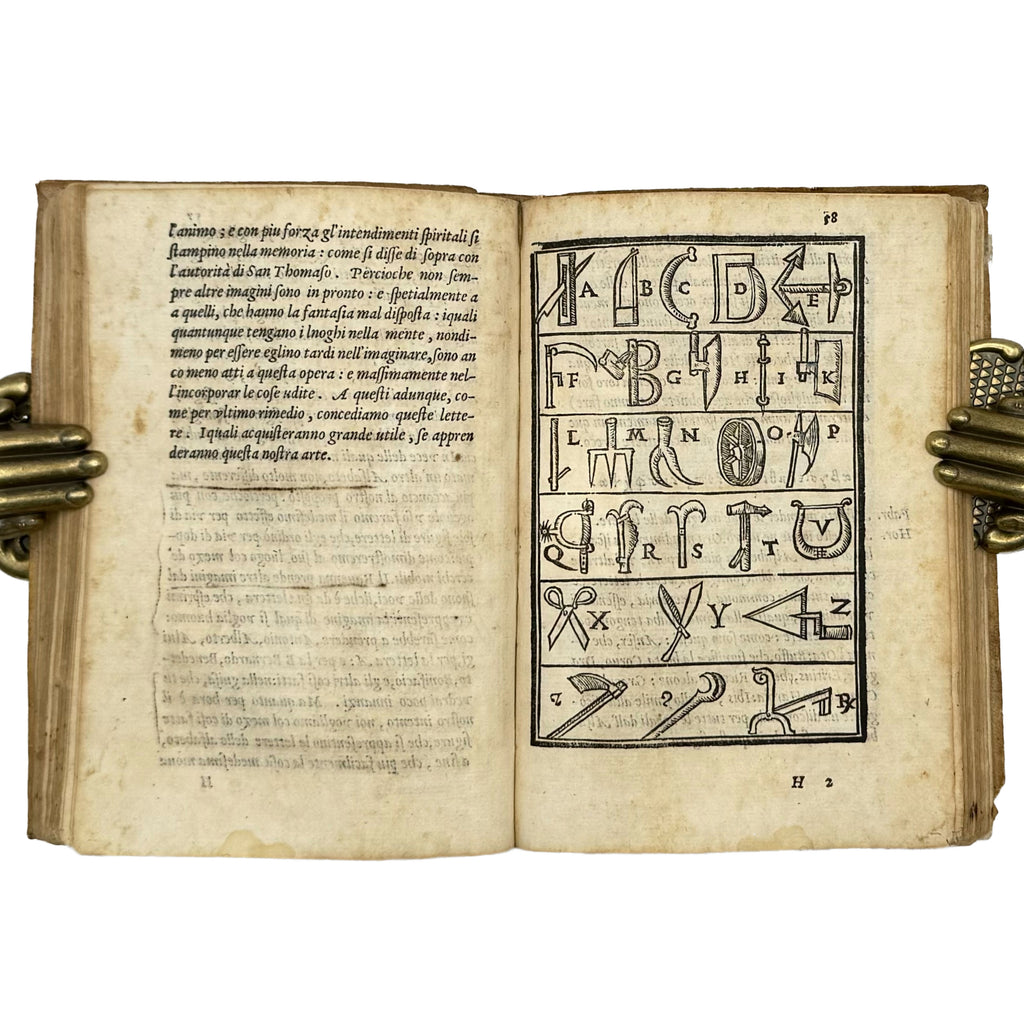 l'animo; e con piu forza gl'intendimenti spiritali si
stampino nella memoria: come si disse di sopra con
l'autorità di San Thomaso. Percioche non sem-
pre altre imagini sono in pronto: e spetialmente a
a quelli, che hanno la fantasia mal disposta: iquali
quantunque tengano i lnoghi nella mente, nondi-
meno per essere eglino tardi nell'imaginare, sono an
co meno atti a questa opera: e massimamente nel-
l'incorporar le cose udite. A questi adunque, co-
me per vltimo rimedio, concediamo queste lette-
re. Iquali acquisteranno grande utile, se appren
deranno questa nostra arte.
58
A B C D E
F G H I K
L M N O P
Q R S T V
X Y Z
H 2